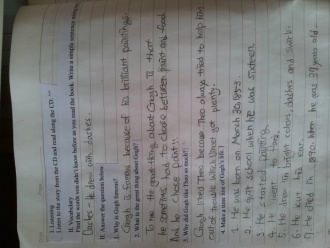 I. Listening
Listen to the story from the CD and read along the CD.
Find the words you didn't know before or you read the book. Write a simple sentence
Dashes He drew with dashes.
III. Answer the question below.
1. Why is Gough famous?
Gough is famous because of his brilliant paintings
2. What is the great thing about Gough?
To me the great thing about Gough is that
he sometimes had to choose between paint and food
And he chose paint!!
3. Why did Gough like Theo so much?
Gough liked Theo because Theo always tried to help him
out while Vincent got plenty.
4. Make a time line of Gough's life
1. He was born on March 30, 1853.
2. He quit school when he was sixteen
3. He started painting.
4. He went to
5. He drew in bright colors, dashes and swirls.
6. He cut his ear.
7. He died in 1890 when he was 37 years old.